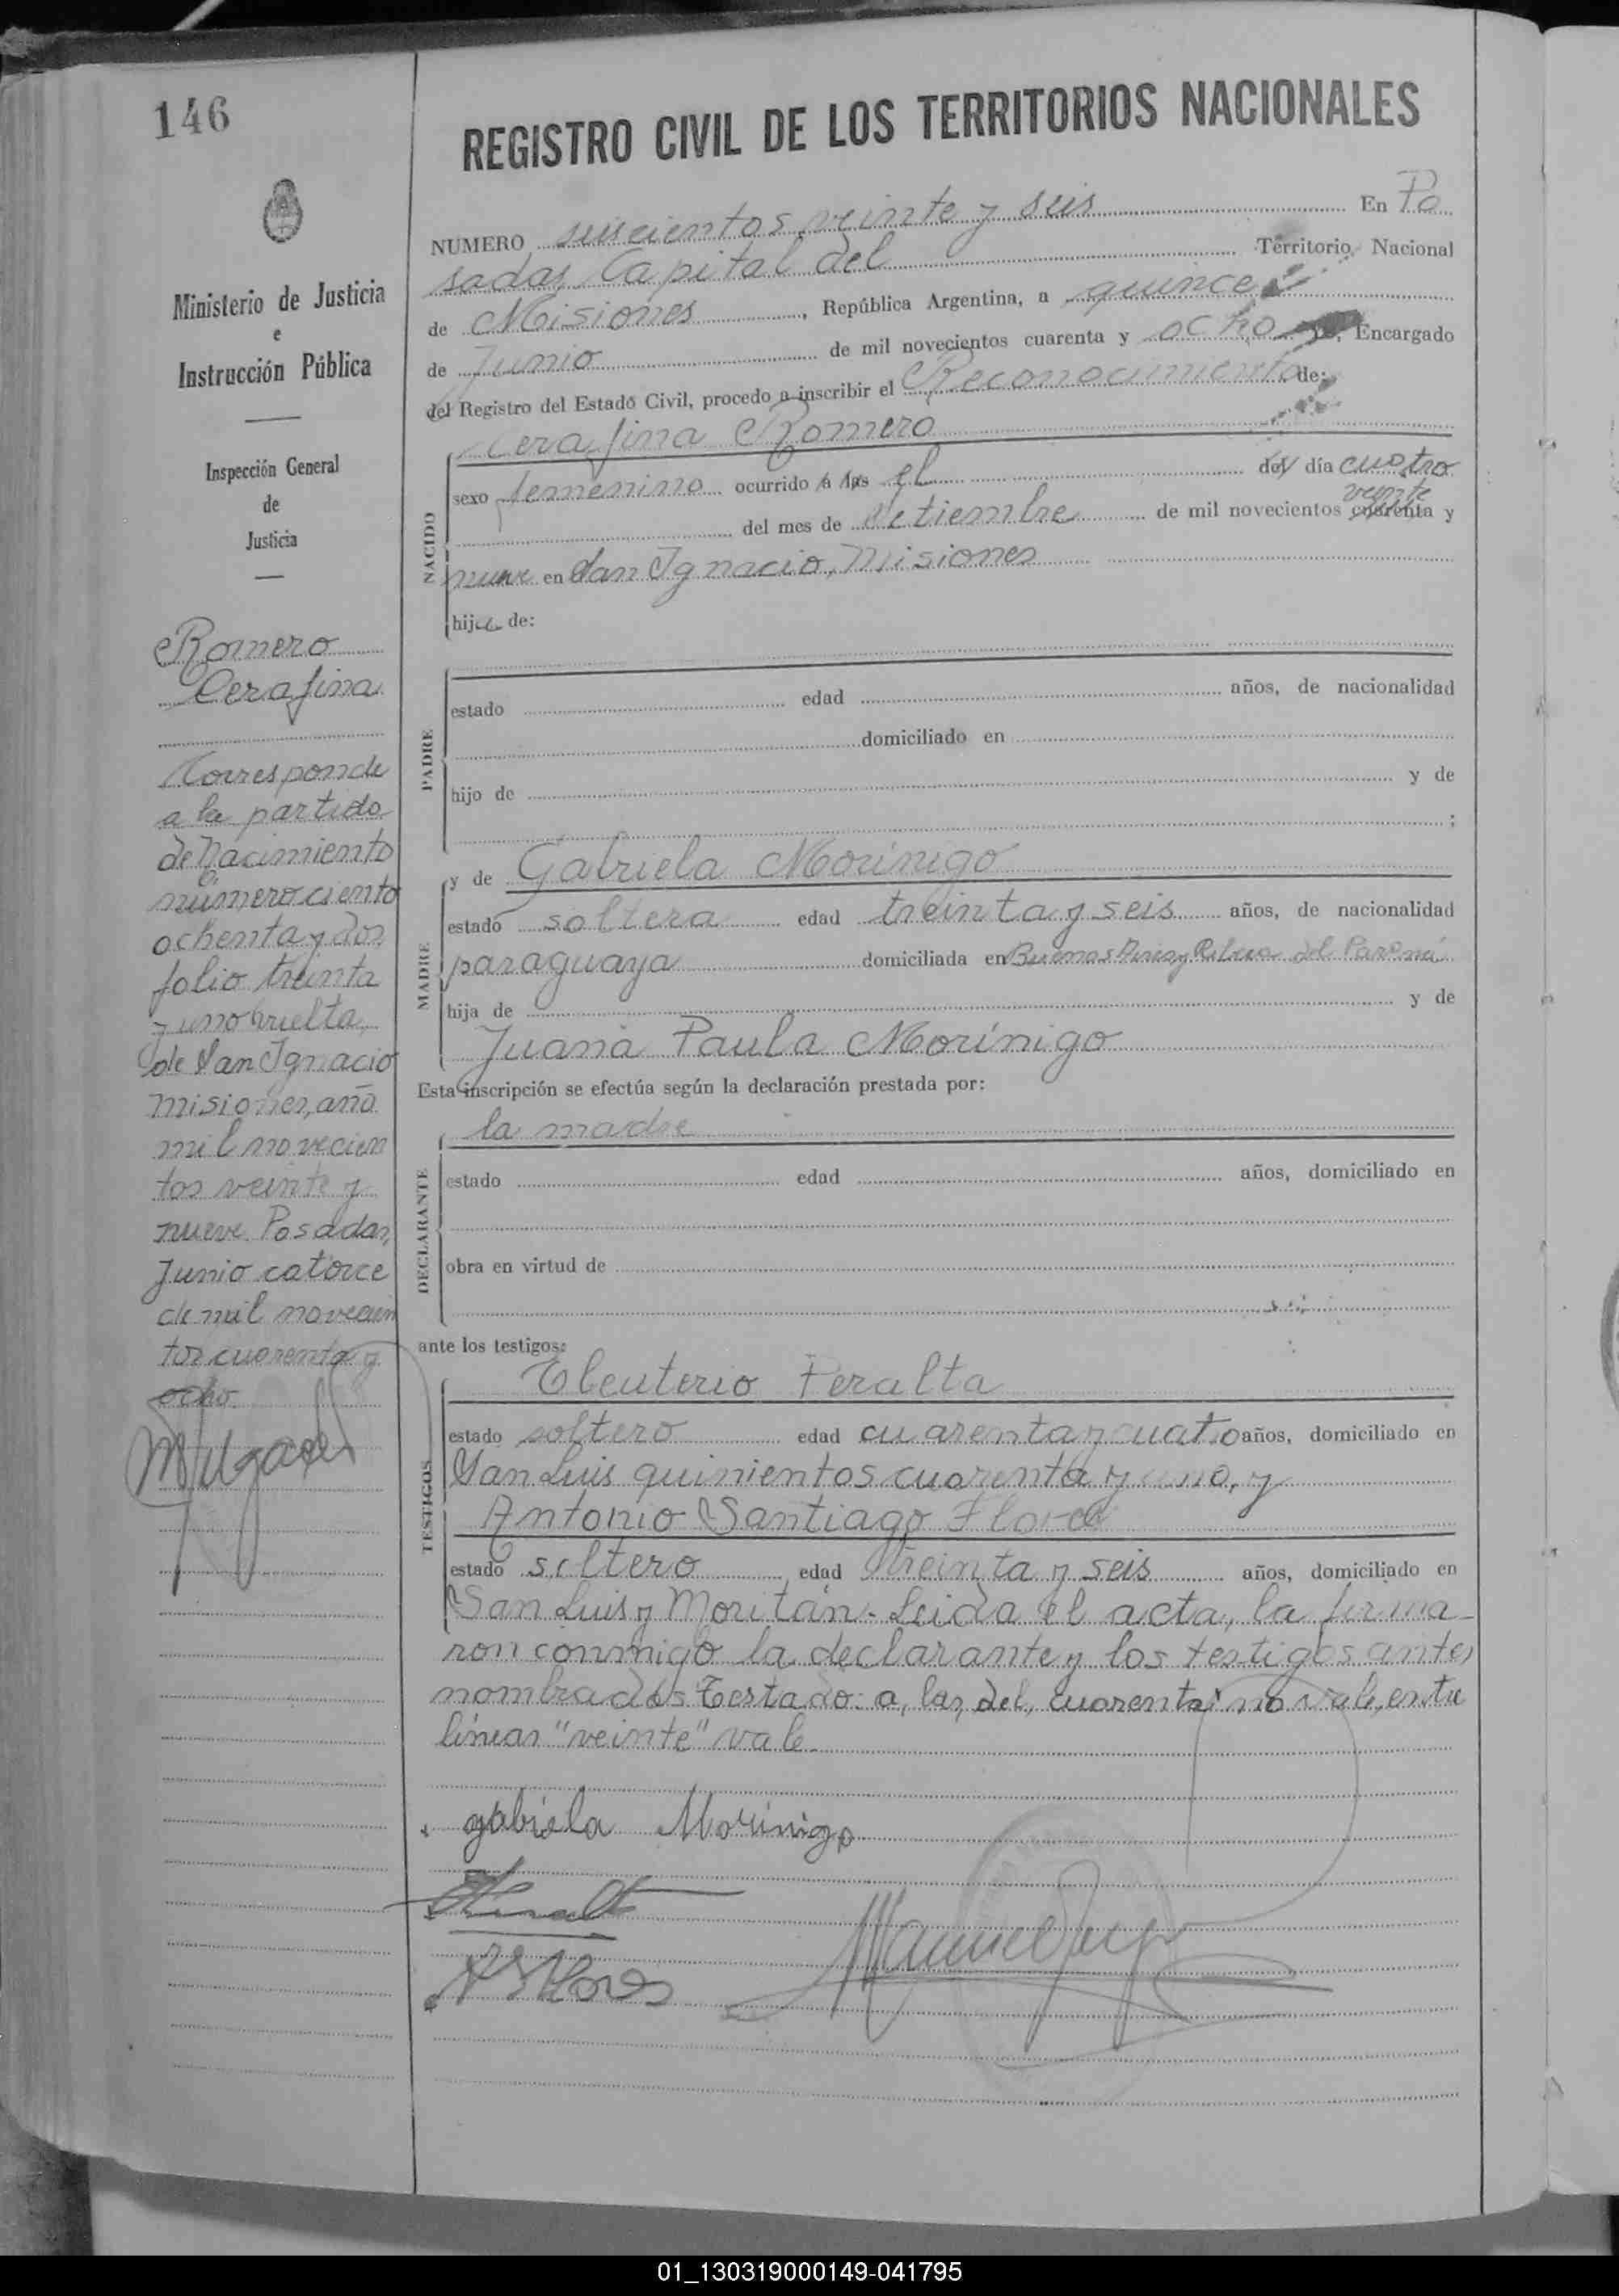 146
REGISTRO CIVIL DE LOS TERRITORIOS NACIONALES
NUMERO seiscientos veinte y seis En Po
sadas Capital del Territorio Nacional
de Misiones, República Argentina, a quince
de Junio de mil novecientos cuarenta y ocho yo, Encargado
del Registro del Estado Civil, procedo a inscribir el Reconocimiento de:
Cerafina Romero
NACIDO
sexo femenino ocurrido a las el del día cuatro
veinte
del mes de Setiembre de mil novecientos cuarenta y
nueve en San Ignacio, Misiones
hija de:
PADRE
estado edad años, de nacionalidad
domiciliado en
hijo de y de
;
MADRE
y de Gabriela Morínigo
estado soltera edad treinta y seis años, de nacionalidad
paraguaya domiciliada en Buenos Aires y Ribera del Paraná
hija de y de
Juana Paula Morínigo
Esta inscripción se efectúa según la declaración prestada por:
DECLARANTE
la madre
estado edad años, domiciliado en
obra en virtud de
ante los testigos:
TESTIGOS
Eleuterio Peralta
estado soltero edad cuarenta y cuatro años, domiciliado en
San Luis quinientos cuarenta y uno, y
Antonio Santiago Flores
estado soltero edad treinta y seis años, domiciliado en
San Luis y Moritán. Leida el acta, la firma-
ron conmigo la declarante y los testigos antes
nombrados Testado: a, las, del, cuarenta: no vale, entre
líneas "veinte" vale
gabriela Morinigo
A S Flores
Ministerio de Justicia
e
Instrucción Pública
Inspección General
de
Justicia
Romero
Cerafina
Corresponde
a la partida
de Nacimiento
número ciento
ochenta y dos
folio treinta
y uno vuelta,
de San Ignacio
Misiones, año
mil novecien
tos veinte y
nueve. Posadas,
Junio catorce
de mil novecien
tos cuarenta y
ocho
01_130319000149-041795